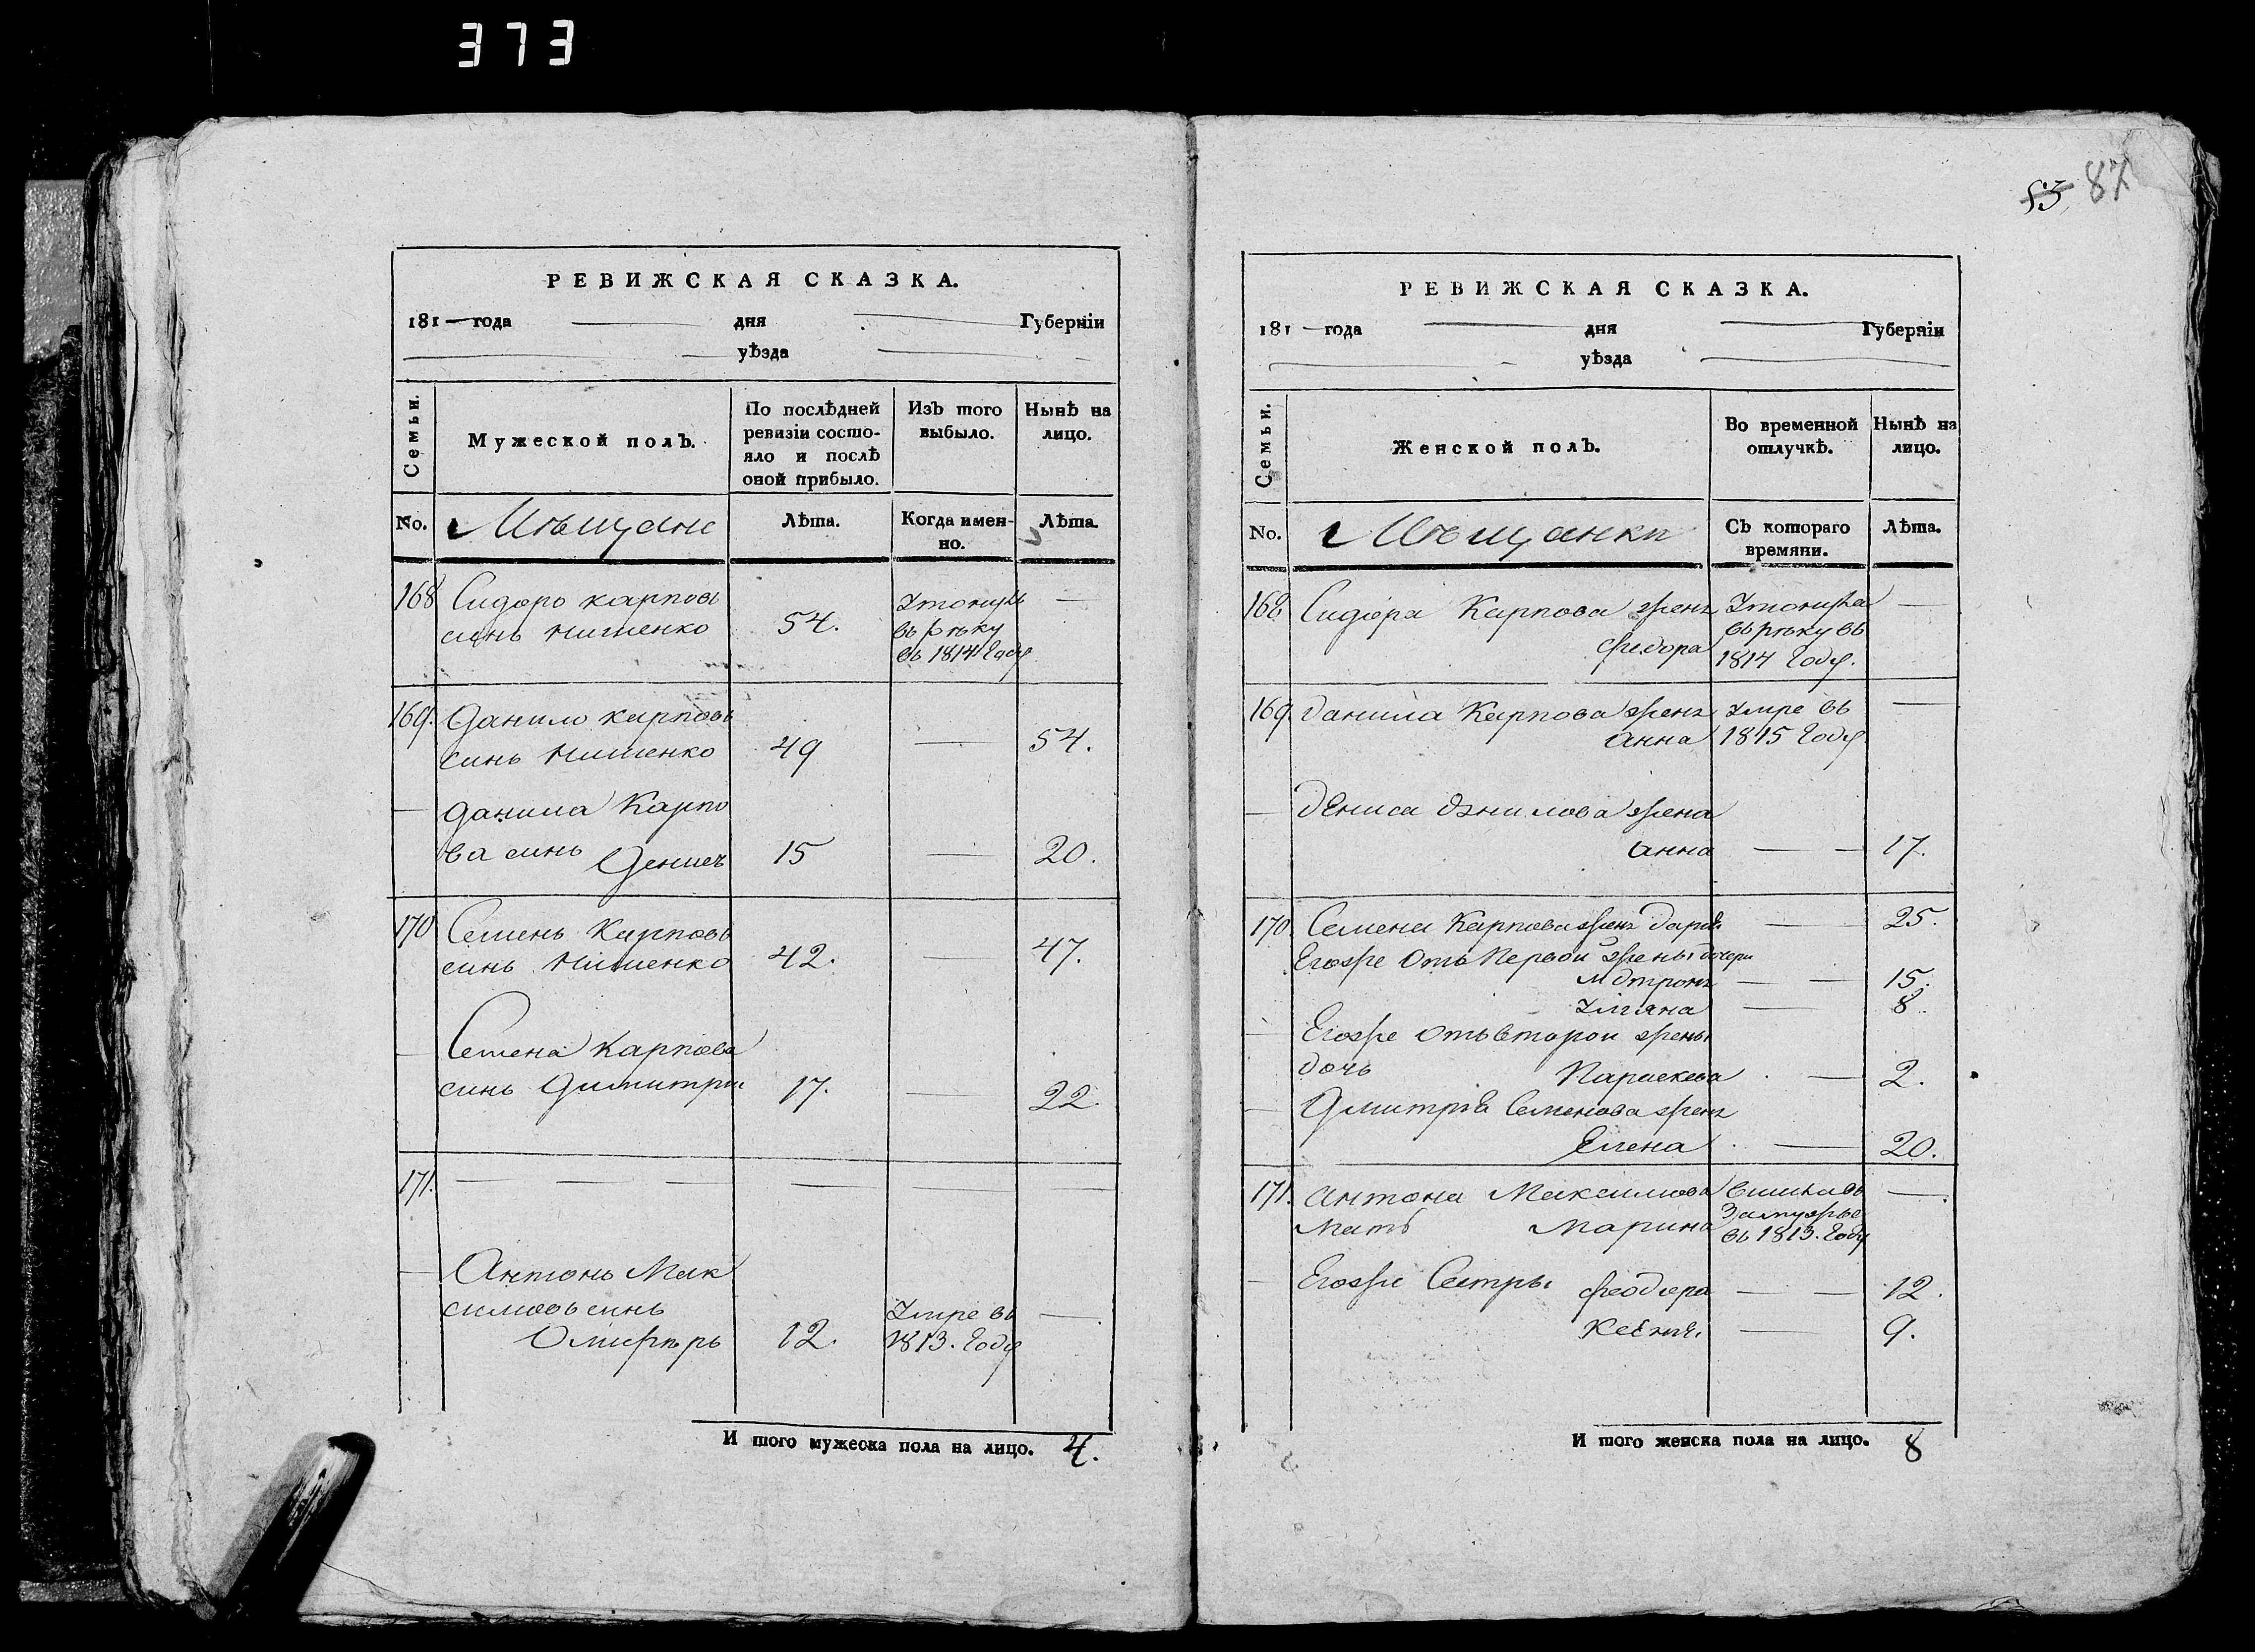 373
83, 87
РЕВИЖСКАЯ СКАЗКА.
181 — года — дня — Губерніи
уѣзда
Семьи.
Мужеской полъ.
По послѣдней ревизіи состояло и послѣ оной прибыло.
Изъ того выбыло.
Нынѣ на лицо.
No. Мѣщане Лѣта. Когда именно. Лѣта
168 Сидоръ карповъ Утонулъ —
синъ Нименко 54. въ рѣку
въ 1814 Году
169. Данило карповъ
синъ Нименко 49 — 54.
— Данила Карпо
ва синъ Денисъ 15 — 20.
170 Семенъ Карповъ
синъ Нименко 42. — 47.
— Семена Карпова
синъ Димитри 17. — 22.
171. — — — — — —
— Антонъ Мак
симовъ синъ Умре въ —
12. 1813. Году
И того мужеска пола на лицо. 4.
РЕВИЖСКАЯ СКАЗКА.
181 — года — дня — Губерніи
уѣзда
Семьи.
Женской полъ.
Во временной отлучкѣ.
Нынѣ на лицо.
No. Мѣщанки Съ котораго времяни. Лѣта.
168 Сидора Карпова жена Утонула —
Федора въ рѣку въ
1814 Году.
169 Данила Карпова жена Умре въ —
Анна 1815 Году
— Дениса Данилова жена
Анна — — 17.
170. Семена Карпова жена Даря — 25.
Егоже Отъ Первой жены дочери
Матрона — — 15.
Улияна — 8.
— Егоже отъ второи жены
дочь Параскева — 2.
— Дмитрія Семенова жена
Елена — 20.
171. Антона Максимова вишла въ —
Мать Марина Замужье
въ 1813. Году
— Егоже Сестры Феодора — — 12.
Ксения — 9.
И того женска пола на лицо. 8